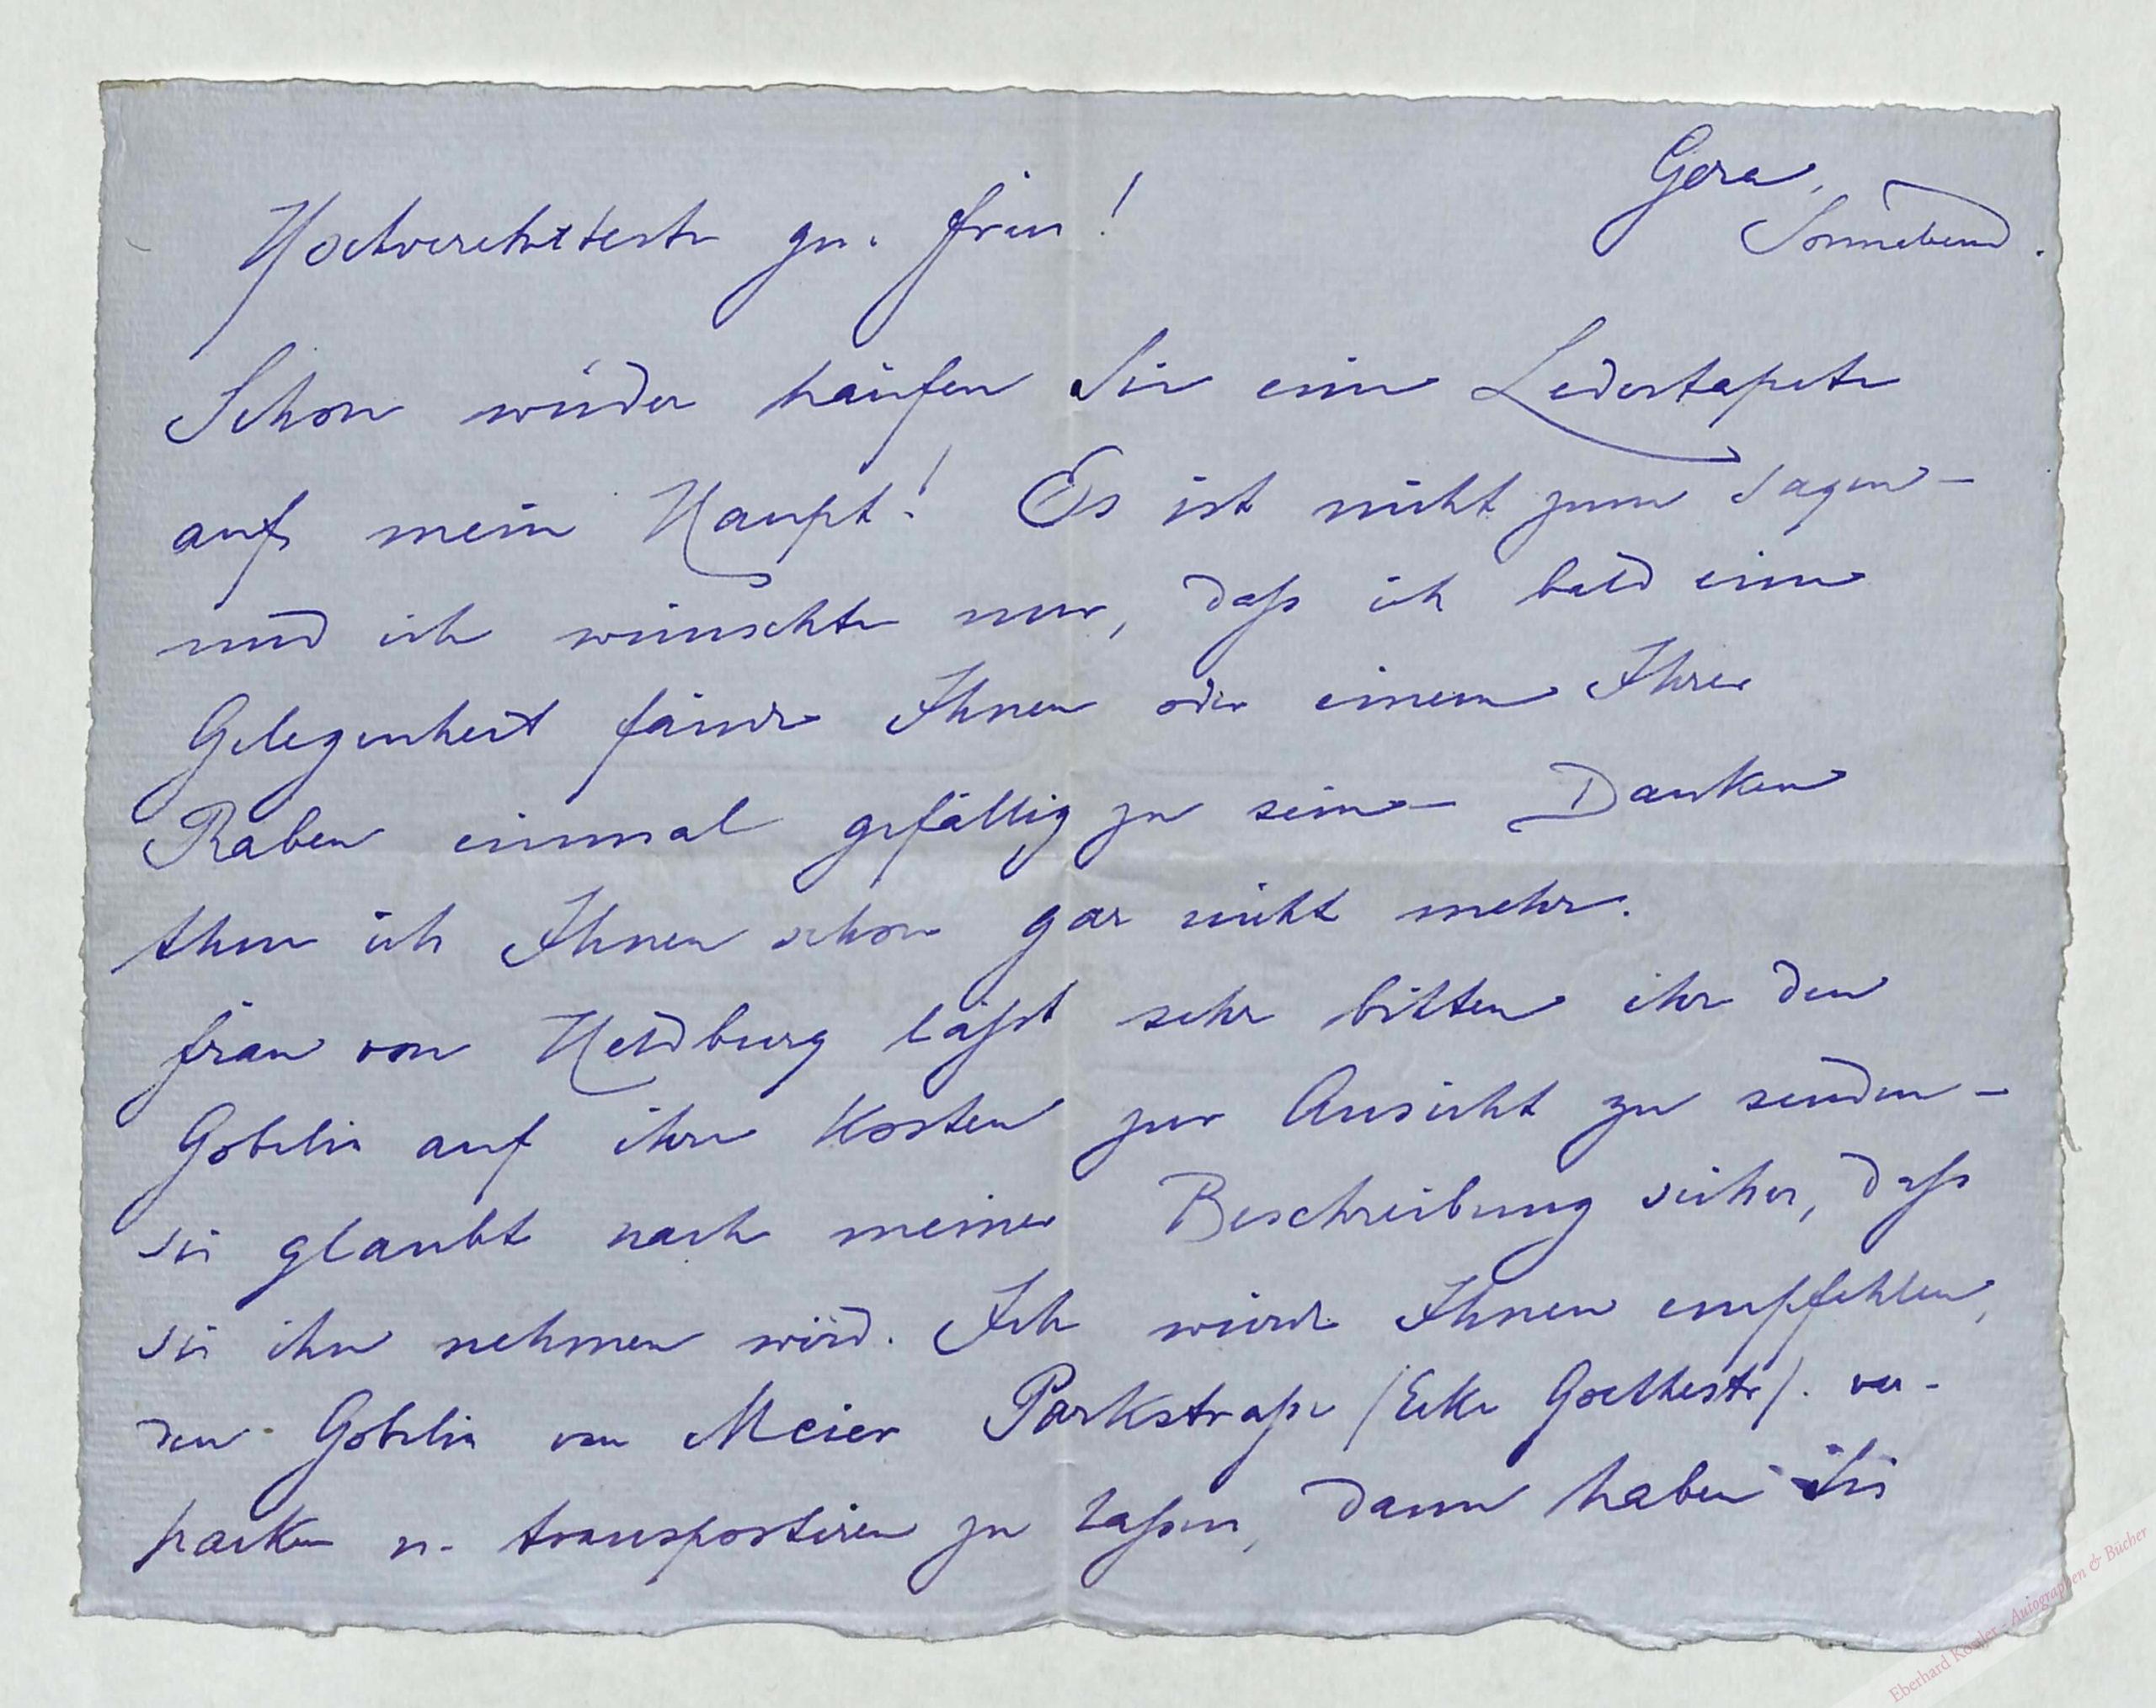 Gera,
Sonnabend.
Hochverehrteste gn. Frau!
Schon wieder häufen Sie eine Ledertapete
auf mein Haupt! Es ist nicht zum sagen –
und ich wünschte nur, daß ich bald eine
Gelegenheit fände Ihnen oder einem Ihrer
Raben einmal gefällig zu sein – Danken
thue ich Ihnen schon gar nicht mehr.
Frau von Heldburg läßt sehr bitten ihr den
Gobelin auf ihre Kosten zur Ansicht zu senden –
sie glaubt nach meiner Beschreibung sicher, daß
sie ihn nehmen wird. Ich würde Ihnen empfehlen,
den Gobelin von Meier Parkstraße (Ecke Goethestr). ver-
packen u. transportiren zu laßen, dann haben Sie
Eberhard Köstler - Autographen & Bücher